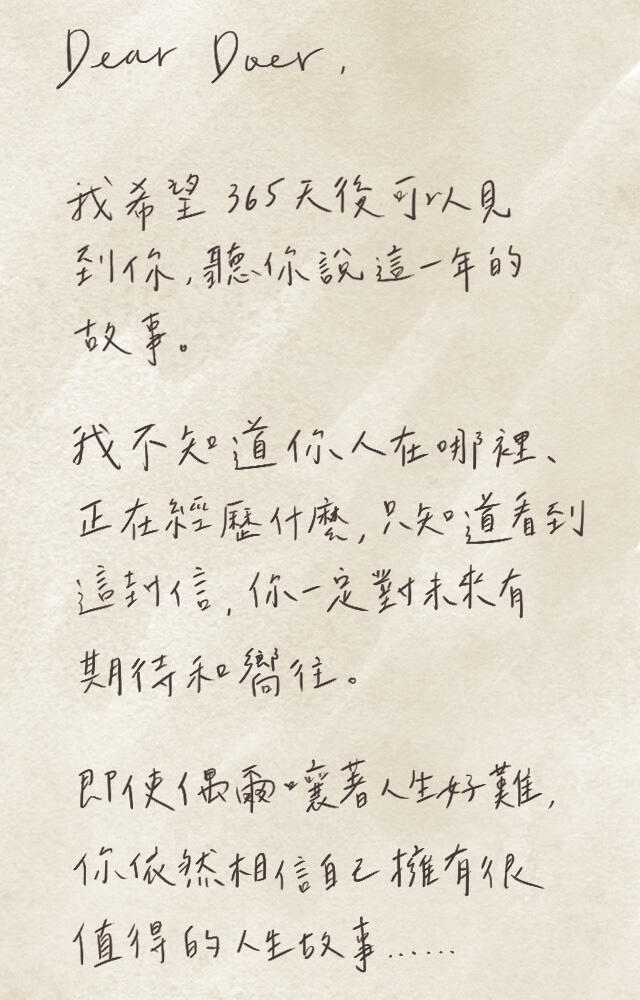 Dear Doer,
我希望365天後可以見
到你,聽你說這一年的
故事。
我不知道你人在哪裡、
正在經歷什麼,只知道看到
這封信,你一定對未來有
期待和嚮往。
即使偶爾嚷著人生好難,
你依然相信自己擁有很
值得的人生故事……